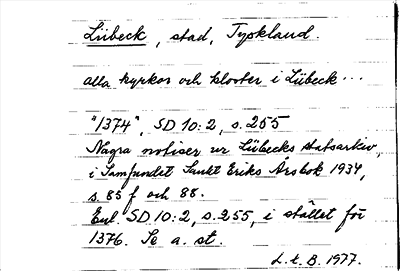 Lübeck, stad, Tyskland.
alla kyrkor och kloster i Lübeck...
"1374", SD 10:2, s. 255
Några notiser ur Lübecks statsarkiv,
i Samfundet Sankt Eriks Årsbok 1934,
s. 85 f och 88.
Enl. SD 10:2, s. 255, i stället för
1376. Se a. st.
L. t. B. 1977.